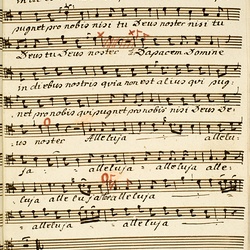 in di
pugnet pro nobis nisi tu Deus noster nisi tu
Deus tu Deus noster Da pacem Domine
in diebus nostris quia non est alius qui pug
net pro nobis qui pugnet pro nobis nisi Deus De
us noster Alleluja allelu
ja alleluja alleluja alle
luja alle luja alleluja
alleluja alleluja